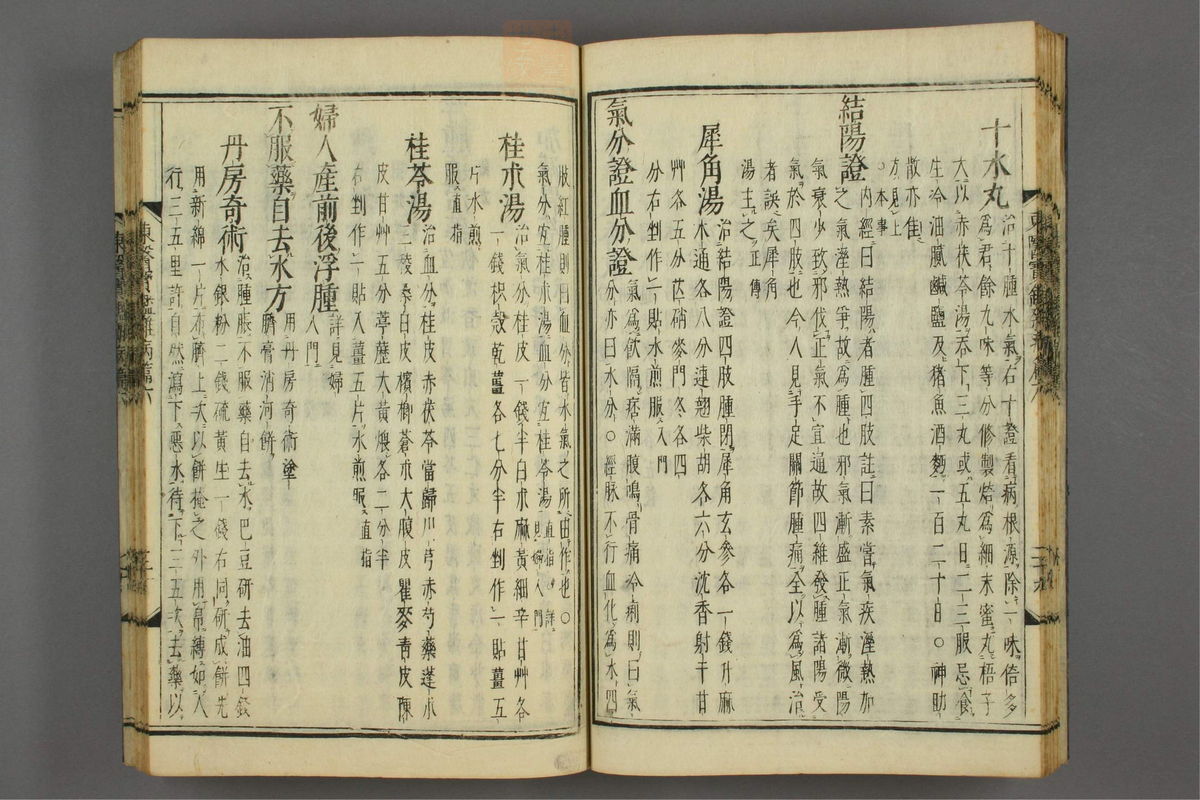 十水丸 治十腫水氣右十證看病根源除一味倍多
爲君餘九味等分修製焙爲細末蜜丸梧子
大以赤茯苓湯呑下三丸或五丸日二三服忌食
生冷油膩鹹鹽及猪魚酒麪一百二十日○神助
散亦佳
方見上
○本事
結陽證 內經曰結陽者腫四肢註曰素當氣疾溼熱加
之氣溼熱爭故爲腫也邪氣漸盛正氣漸微陽
氣衰少致邪伐正氣不宣通故四維發腫諸陽受
氣於四肢也今人見手足關節腫痛全以爲風治
者誤矣犀角
湯主之正傳
犀角湯 治結陽證四肢腫閉犀角玄參各一錢升麻
木通各八分連翹柴胡各六分沈香射干甘
艸各五分芒硝麥門冬各四
分右剉作一貼水煎服入門
氣分證血分證 氣爲飮隔痞滿腹鳴骨痛冷痢則曰氣
分水分亦曰水分○經脉不行血化爲水四
肢紅腫則曰血分皆水氣之所由作也○
氣分宜桂朮湯血分宜桂苓湯直指○詳見婦人門
桂朮湯 治氣分桂皮一錢半白朮麻黃細辛甘艸各
一錢枳殼乾薑各七分半右剉作一貼薑五
片水煎
服直指
桂苓湯 治血分桂皮赤茯苓當歸川芎赤芍藥蓬朮
三稜桑白皮檳榔蒼朮大腹皮瞿麥靑皮陳
皮甘艸五分葶藶大黃煨各二分半
右剉作一貼入薑五片水煎服直指
婦人產前後浮腫 詳見婦
人門
不服藥自去水方 用丹房奇術塗
臍膏消河餠
丹房奇術 治腫脹不服藥自去水巴豆硏去油四錢
水銀粉二錢硫黃生一錢右同硏成餠先
用新綿一片布臍上次以餠掩之外用帛縛如人
行三五里許自然瀉下惡水待下三五次去藥以
東醫寶鑑雜病篇六